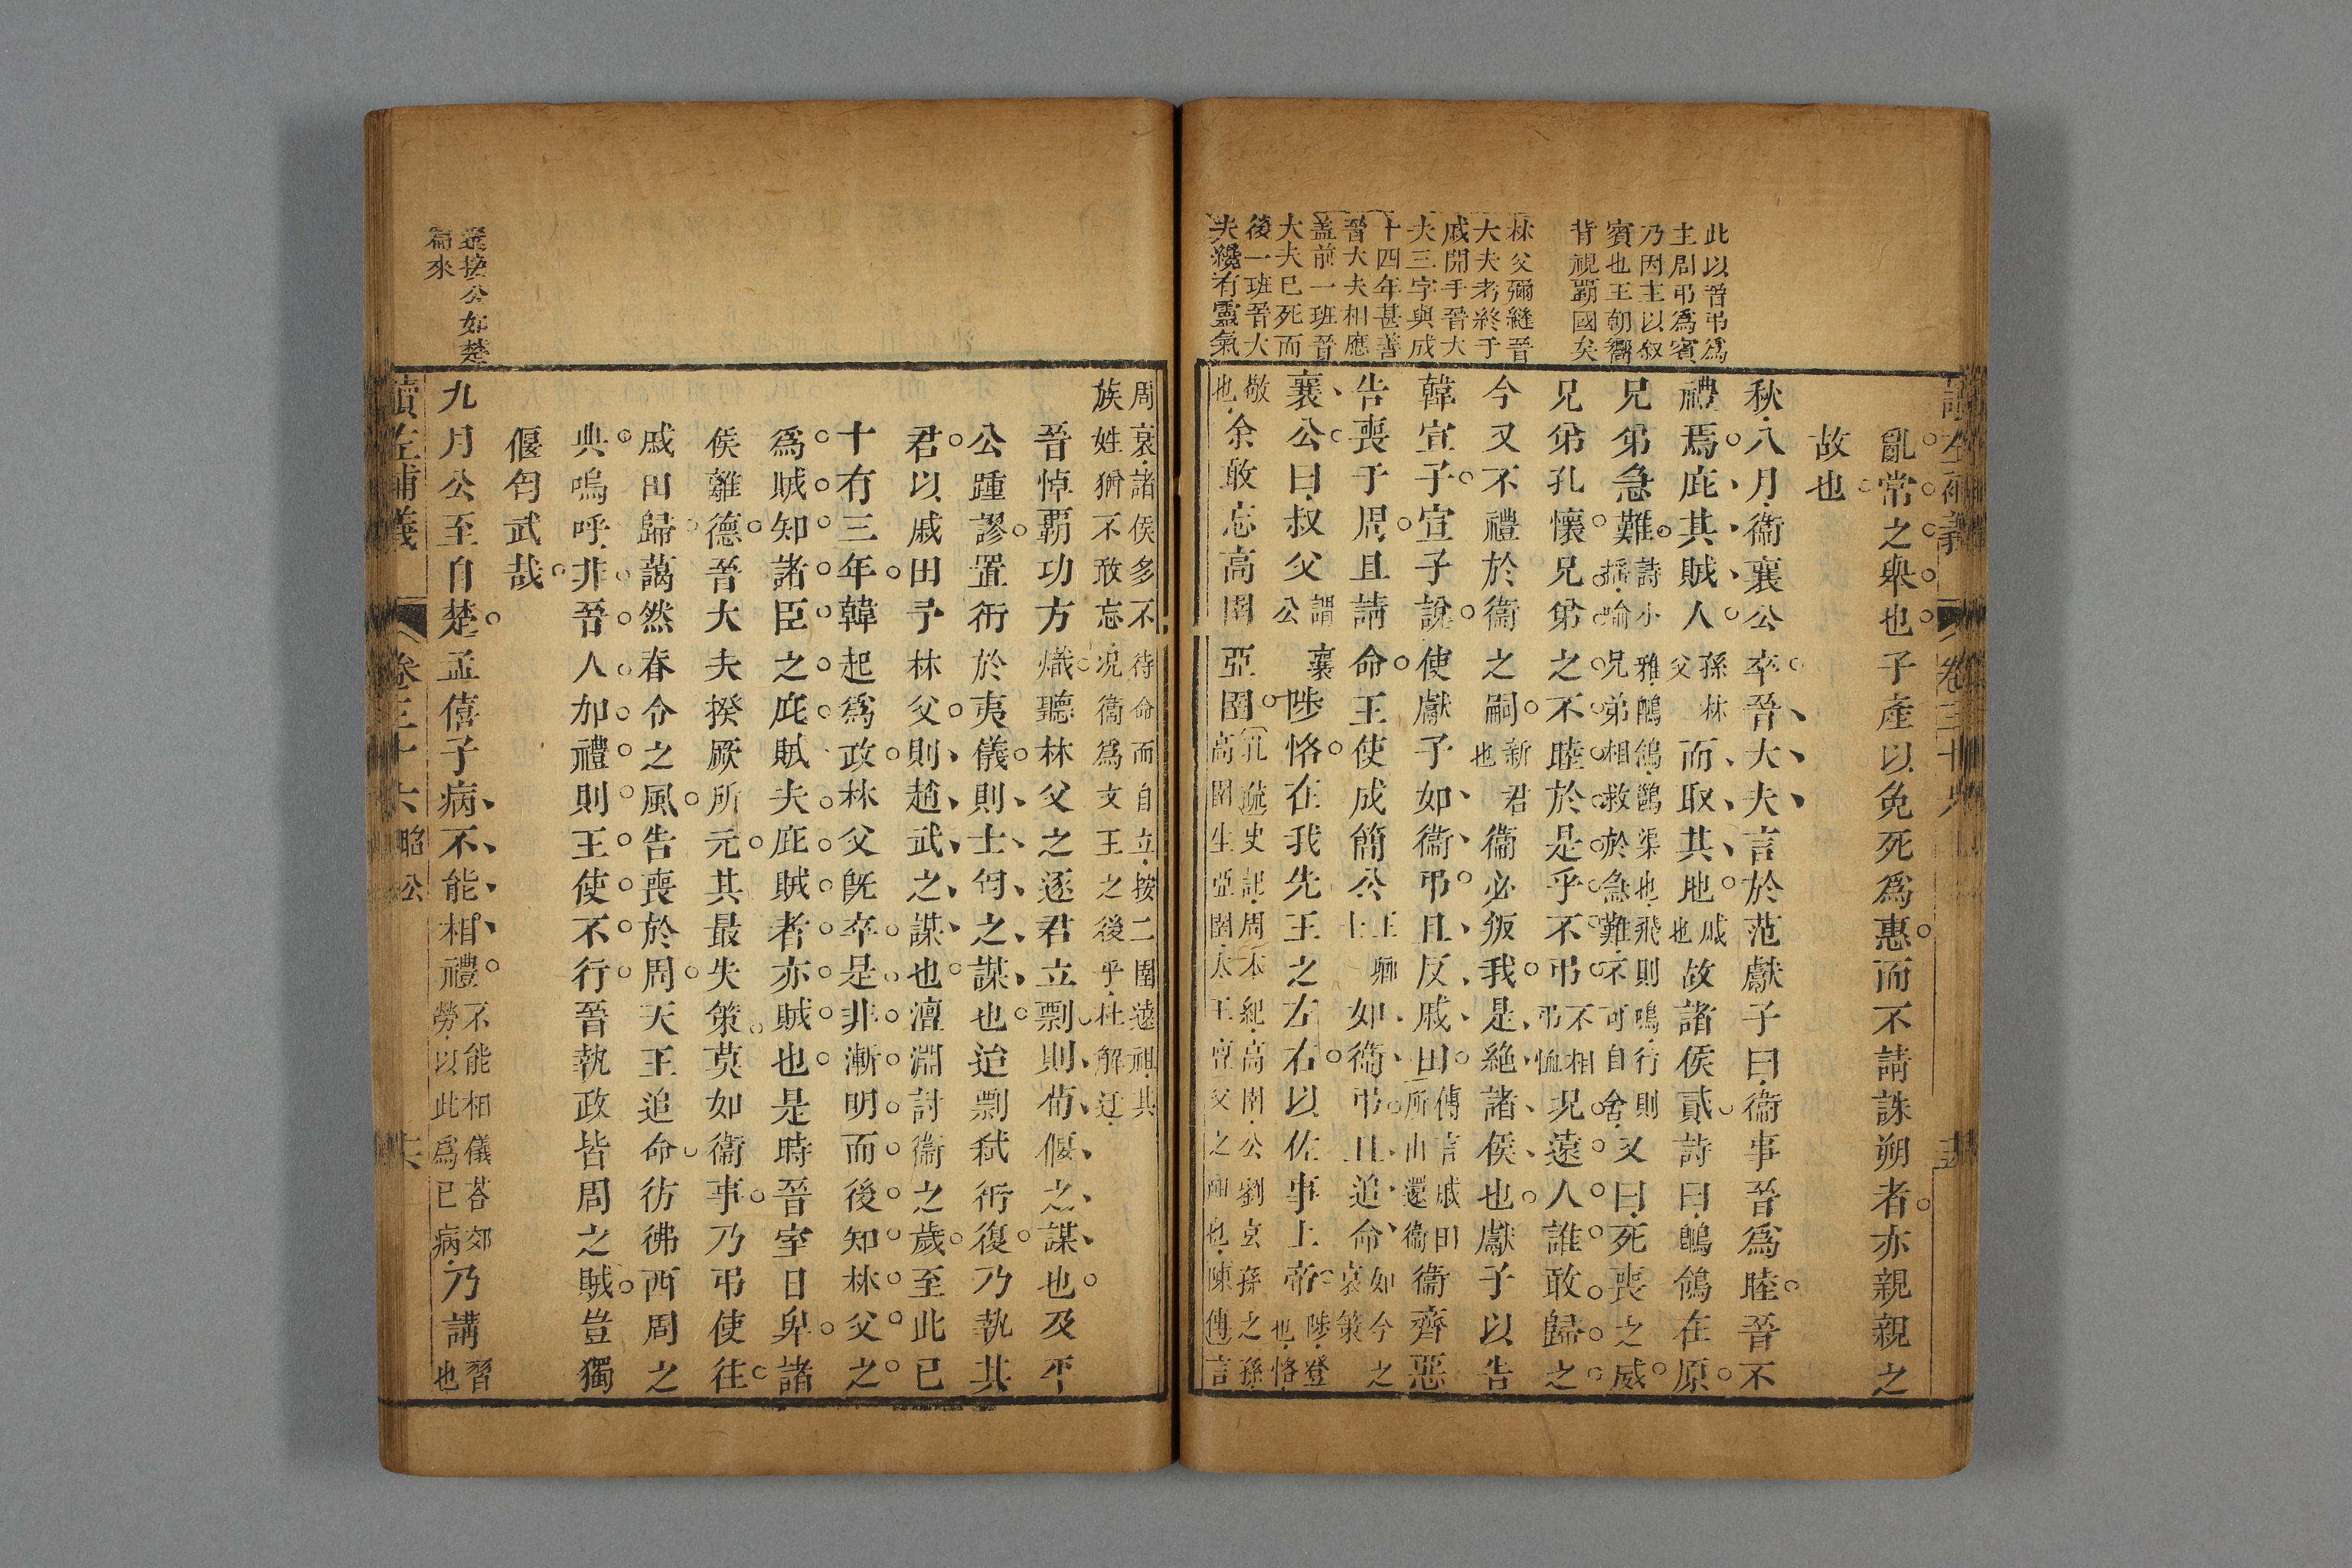 此以晉弔爲
主周弔爲賓
乃因主以叙
賓也王朝嚮
背視覇國矣
林父彌縫晉
大夫者終于
戚開手晉大
夫三字與成
十四年甚善
晉大夫相應
蓋前一班晉
大夫已死而
後一班晉大
夫纔有靈氣
亂常之舉也子產以免死爲惠而不請誅朔者亦親親之
故也
秋八月衞襄公卒晉大夫言於范獻子曰衞事晉爲睦晉不
禮焉庇其賊人孫林父而取其地戚也故諸侯貳詩曰鶺鴒在原
兄弟急難詩小雅鶺鴒鶺渠也飛則鳴行則搖喻兄弟相救於急難不可自舍又曰死喪之威
兄弟孔懷兄弟之不睦於是乎不弔不相弔恤况遠人誰敢歸之
今又不禮於衞之嗣新君也衞必叛我是絶諸侯也獻子以告
韓宣子宣子說使獻子如衞弔且反戚田傳言戚田所由還衞衞齊惡
告喪于周且請命王使成簡公王卿士如衞弔且追命如今之哀策
襄公曰叔父謂襄公陟恪在我先王之左右以佐事上帝陟登也恪
敬也余敢忘高圉亞圉孔疏史記周本紀高圉公劉玄孫之孫高圉生亞圉太王亶父之祖也陳傳言
周哀諸侯多不待命而自立按二圉遠祖其
族姓猶不敢忘况衞爲文王之後乎杜解迂
晉悼覇功方熾聽林父之逐君立剽則荀偃之謀也及平
公踵謬置衎於夷儀則士匄之謀也迨剽弑衎復乃執其
君以戚田予林父則趙武之謀也澶淵討衞之歲至此已
十有三年韓起爲政林父旣卒是非漸明而後知林父之
爲賊知諸臣之庇賊夫庇賊者亦賊也是時晉室日卑諸
侯離德晉大夫揆厥所元其最失策莫如衞事乃弔使往
戚田歸藹然春令之風告喪於周天王追命彷彿西周之
典嗚呼非吾人加禮則王使不行晉執政皆周之賊豈獨
偃匄武哉
九月公至自楚孟僖子病不能相禮不能相儀荅郊勞以此爲已病乃講習也
遥接公如楚
篇來
讀左補義
卷三十六
昭公